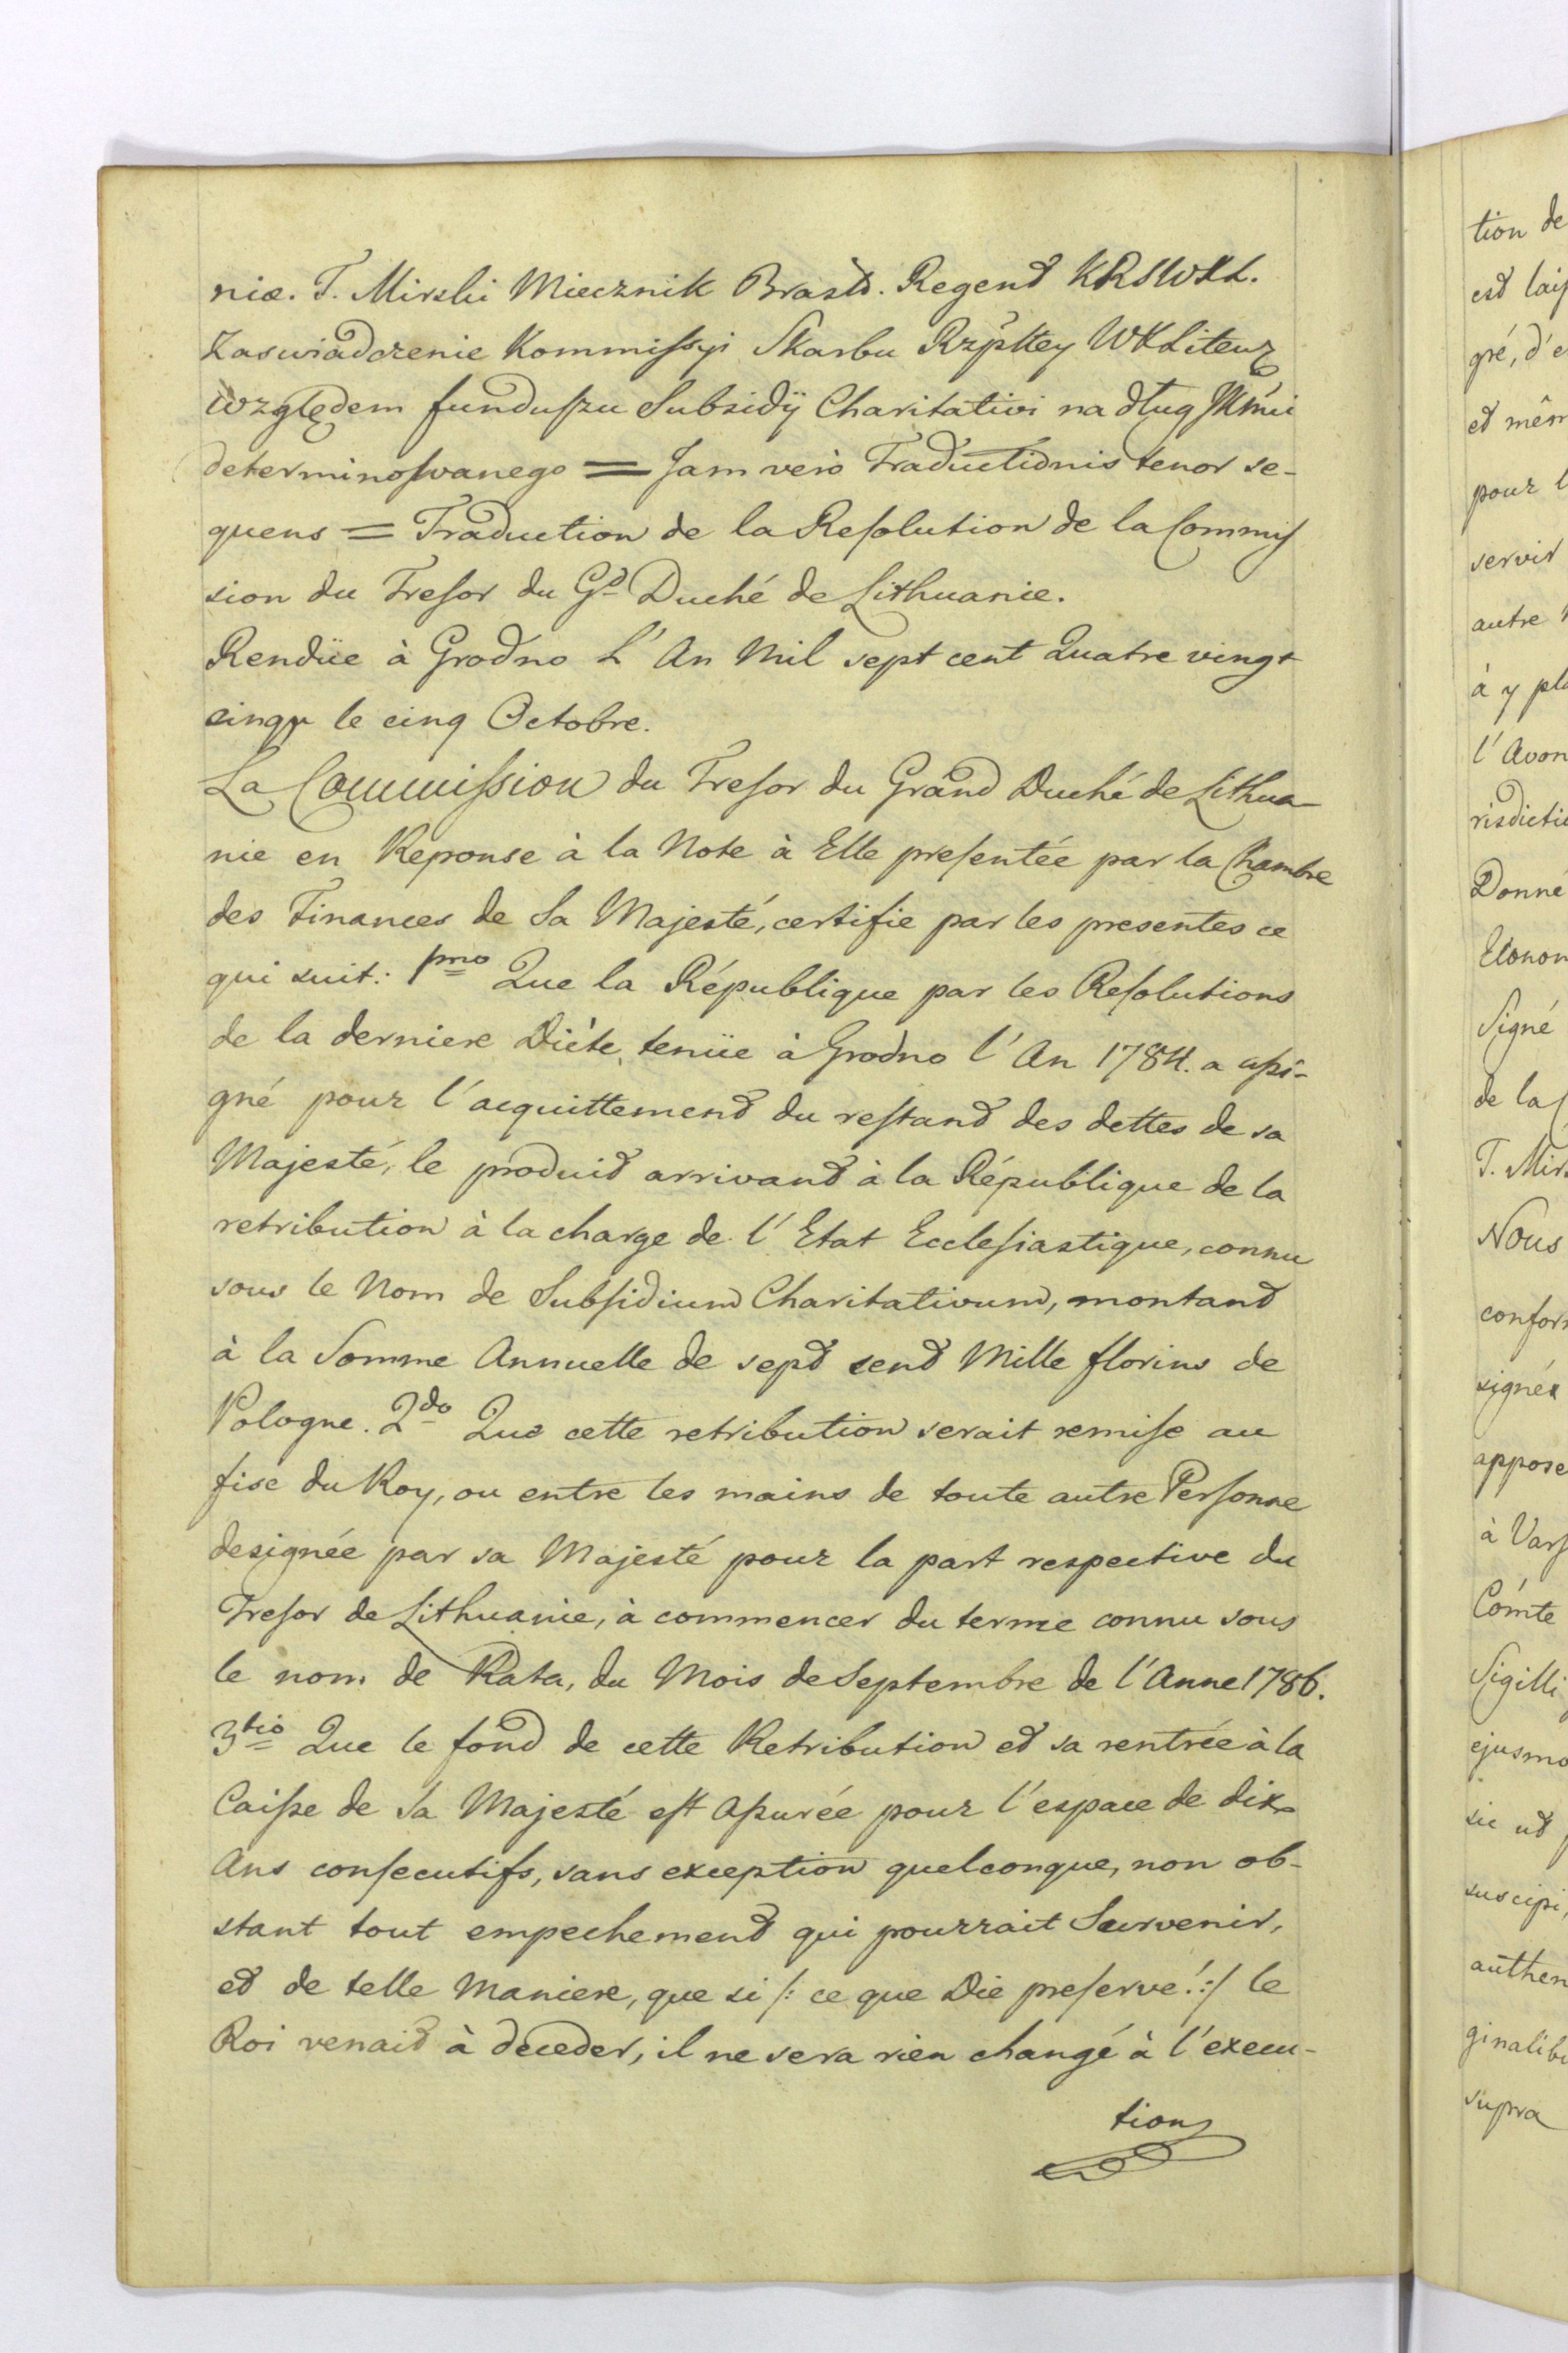 niæ. T. Mirski Miecznik Brasłd. Regend KRSWXL.
Zaswiadczenie Kommiſsyi Skarbu Rzpłtey WXLiteuz
względem funduſzu Subsidÿ Charitativi na dług JKMci
determinoſwanego = Jam verò Traductionis tenor se-
quens = Traduction de la Reſolution de la Commiſ
sion du Treſor du Gd Duché de Lithuanie.
Rendüe à Grodno L'An Mil sept cent Quatre vingt
cinqu le cinq Octobre.
La Commiſsion du Treſor du Grand Duché de Lithua-
nie en Reponse à la Note à Elle preſentée par la Chambre
des Finances de Sa Majesté, certifie par les presentes ce
qui suit: 1mo Que la République par les Reſolutions
de la derniere Diète, tenüe à Grodno l'An 1784. a aſsi-
gné pour l'acquittemend du reſtand des dettes de sa
Majesté, le produid arrivand à la République de la
retribution à la charge de l'Etat Eccleſiastique, connu
sous le Nom de Subſidium Charitativum, montand
à la Somme Annuelle de sepd cend Mille florins de
Pologne. 2do Que cette retribution serait remiſe au
fisc du Roy, ou entre les mains de toute autre Perſonne
designée par sa Majesté pour la part respective du
Treſor de Lithuanie, à commencer du terme connu sous
le nom de Rata, du Mois de Septembre de l'Anne 1786.
3tio Que le fond de cette Retribution ed sa rentrée à la
Caiſse de Sa Majesté eſt aſsurée pour l'espace de dix
Ans conſecutifs, sans exception quelconque, non ob-
stant tout empechemend qui pourrait Survenir,
ed de telle Maniere, que si /: ce que Die preſerve! :/ le
Roi venaid à deceder, il ne sera rien changé à l'execu-
tion
tion de
esd laiſ
gré, d'e
ed mêm
pour l
servir
autre
à y pla
l'Avon
risdicti
Donné
Econon
Signé
de la
T. Mirs
Nous
confor
signéx
appose
à Varſ
Cómte
Sigilli
ejusmo
sic ud
suscipi,
authen
ginalibu
supra